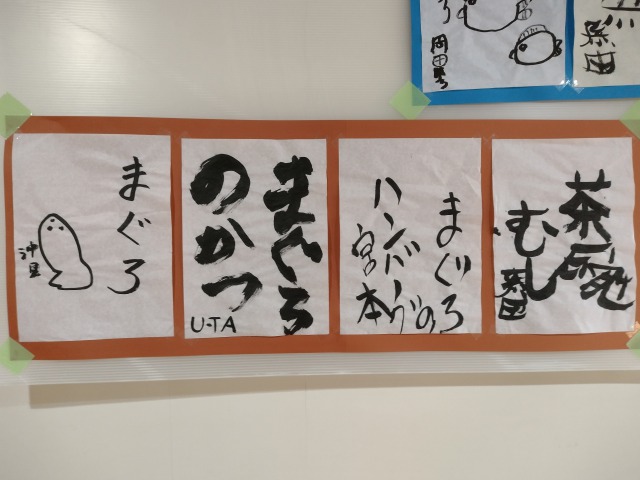 茶碗
むし
まぐろの
ハンバーグ
宮本
まぐろ
のかつ
U-TA
まぐろ
沖里
岡田